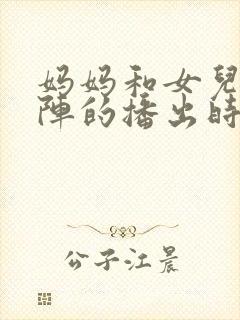 妈妈和女兒
陣的播出時
公子江晨